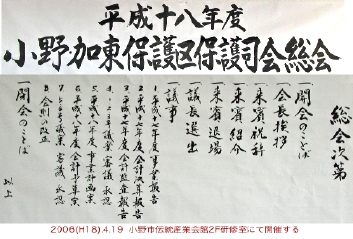 平成十八年度
小野・加東保護区保護司会総会
総会次第
一 開会のことば
一 会長挨拶
一 来賓祝辞
一 来賓紹介
一 来賓退場
一 議長選出
一 議事
1. 平成十七年度事業報告
2. 平成十七年度会計決算報告
3. 平成十七年度会計監査報告
4. 1.2.3号議案 審議 承認
5. 平成十八年度事業計画案
6. 平成十八年度会計予算案
7. 5.6号議案 審議 承認
8. 会則の改正
一 閉会のことば
以上
2006(H18).4.19 小野市伝統産業会館2F研修室にて開催する